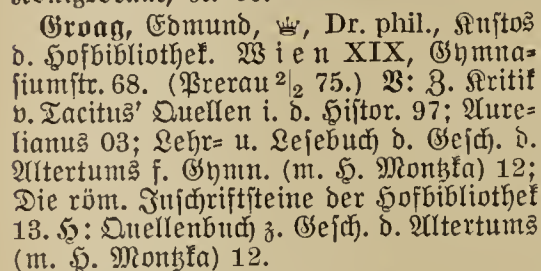 Groag, Edmund, ♕, Dr. phil., Kustos
d. Hofbibliothek. Wien XIX, Gymna-
siumstr. 68. (Prerau 2|2 75.) V: Z. Kritik
v. Tacitus' Quellen i. d. Histor. 97; Aure-
lianus 03; Lehr- u. Lesebuch d. Gesch. d.
Altertums f. Gymn. (m. H. Montzka) 12;
Die röm. Inschriftsteine der Hofbibliothek
13. H: Quellenbuch z. Gesch. d. Altertums
(m. H. Montzka) 12.